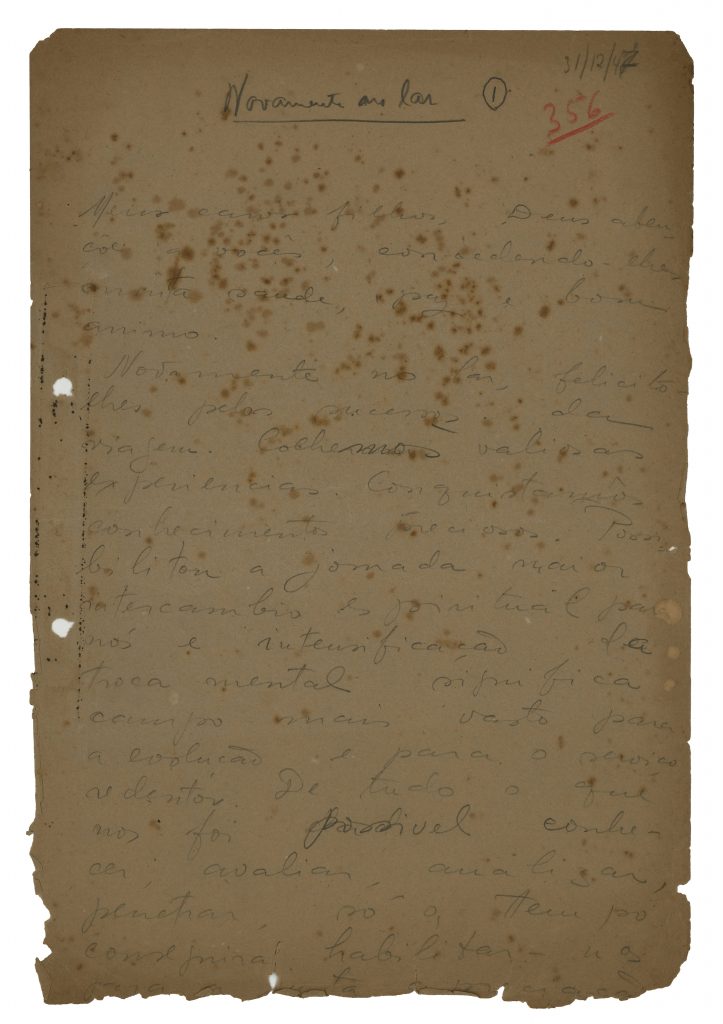 31/12/47
Novamente no lar 1
356
Meus caros filhos, Deus aben-
çõe a vocês, concedendo-lhes
muita saúde, paz e bom
ânimo.
Novamente no lar, felicito-
lhes pelos sucessos da
viagem. Colhemos valiosas
experiencias. Conquistamos
conhecimentos preciosos. Possi-
bilitou a jornada maior
intercambio espiritual para
nós e intensificação da
troca mental significa
campo mais vasto para
a evolução e para o serviço
redentor. De tudo o que
nos foi possivel conhe-
cer, avaliar, analizar,
penetrar, só o tempo
conseguirá habilitar-nos
para a